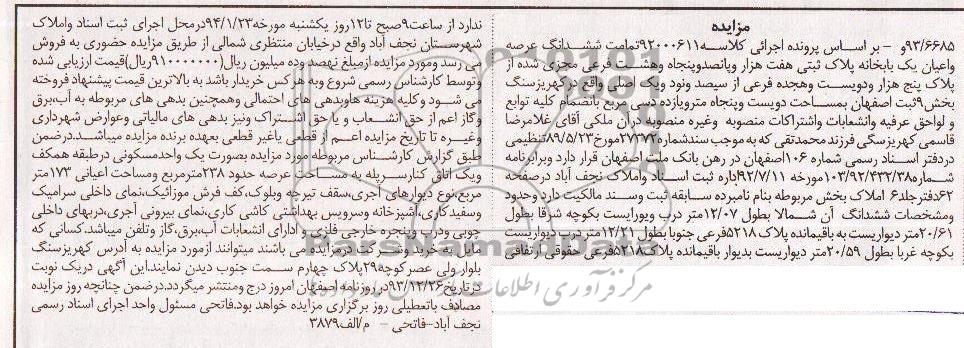 مزایده
۹۳/۶۶۸۵و - بر اساس پرونده اجرائی کلاسه۹۲۰۰۰۶۱۱تمامت ششدانگ عرصه
واعیان یک بابخانه پلاک ثبتی هفت هزار وپانصدوپنجاه وهشت فرعی مجزی شده از
پلاک پنج هزار ودویست وهجده فرعی از سیصد ونود ویک اصلی واقع درکهریزسنگ
بخش۹ثبت اصفهان بمساحت دویست وپنجاه مترویازده دسی مربع بانضمام کلیه توابع
و لواحق عرفیه وانشعابات واشتراکات منصوبه وغیره منصوبه درآن ملکی آقای غلامرضا
قاسمی کهریزسنگی فرزند محمدتقی که به موجب سندشماره۲۷۳۷۲مورخ۸۹/۵/۲۳تنظیمی
دردفتر اسناد رسمی شماره ۱۰۶اصفهان در رهن بانک ملت اصفهان قرار دارد وبرابرنامه
شماره۱۰۳/۹۲/۴۳۲/۳۸مورخه ۹۲/۷/۱۱اداره ثبت اسناد واملاک نجف آباد درصفحه
۶۲دفترجلد۶ املاک بخش مربوطه بنام نامبرده سابقه ثبت وسند مالکیت دارد وحدود
ومشخصات ششدانگ آن شمالا بطول ۱۲/۰۷متر درب ودیوارست بکوچه شرقا بطول
۲۰/۶۱متر دیواریست به باقیمانده پلاک۵۲۱۸فرعی جنوبا بطول ۱۲/۲۱متر درب دیواریست
بکوچه غربا بطول ۲۰/۵۹متر دیواریست بدیوار باقیمانده پلاک۵۲۱۸فرعی حقوق ارتفاقی
ندارد از ساعت۹صبح تا۱۲روز یکشنبه مورخه۹۴/۱/۲۳درمحل اجرای ثبت اسناد واملاک
شهرستان نجف آباد واقع درخیابان منتظری شمالی از طریق مزایده حضوری به فروش
می رسد ومورد مزایده ازمبلغ نهصدوده میلیون ریال(۹۱۰۰۰۰۰۰۰ریال)قیمت ارزیابی شده
وتوسط کارشناس رسمی شروع وبه هرکس خریدار باشد به بالاترین قیمت پیشنهاد فروخته
می شود وکلیه هزینه هاوبدهی های احتمالی وهمچنین بدهی های مربوطه به آب،برق
وگاز اعم از حق انشعاب و یا حق اشتراک ونیز بدهی های مالیاتی وعوارض شهرداری
وغیره تا تاریخ مزایده اعم از قطعی یاغیر قطعی بعهده برنده مزایده میباشد.درضمن
طبق گزارش کارشناس مربوطه مورد مزایده بصورت یک واحدمسکونی درطبقه همکف
ویک اتاق کنارسرپله به مساحت عرصه حدود ۲۳۸مترمربع ومساحت اعیانی ۱۷۳متر
مربع،نوع دیوارهای آجری،سقف تیرچه وبلوک،کف فرش موزائیک،نمای داخلی سرامیک
وسفیدکاری،آشپزخانه وسرویس بهداشتی کاشی کاری،نمای بیرونی آجری،دربهای داخلی
چوبی ودرب وپنجره خارجی فلزی و ادارای انشعابات آب،برق،گاز وتلفن میباشد.کسانی که
مایل به خرید وشرکت در مزایده می باشند میتوانند ازمورد مزایده به آدرس کهریزسنگ
بلوار ولی عصرکوچه۲۹پلاک چهارم سمت جنوب دیدن نمایند.این آگهی دریک نوبت
درتاریخ۹۳/۱۲/۲۶درروزنامه اصفهان امروز درج ومنتشر میگردد.درضمن چنانچه روز مزایده
مصادف باتعطیلی روز برگزاری مزایده خواهد بود.فاتحی مسئول واحد اجرای اسناد رسمی
نجف آباد-فاتحی - م/الف۳۸۷۹
ParsNamadData
مرکز فرآوری اطلاعات